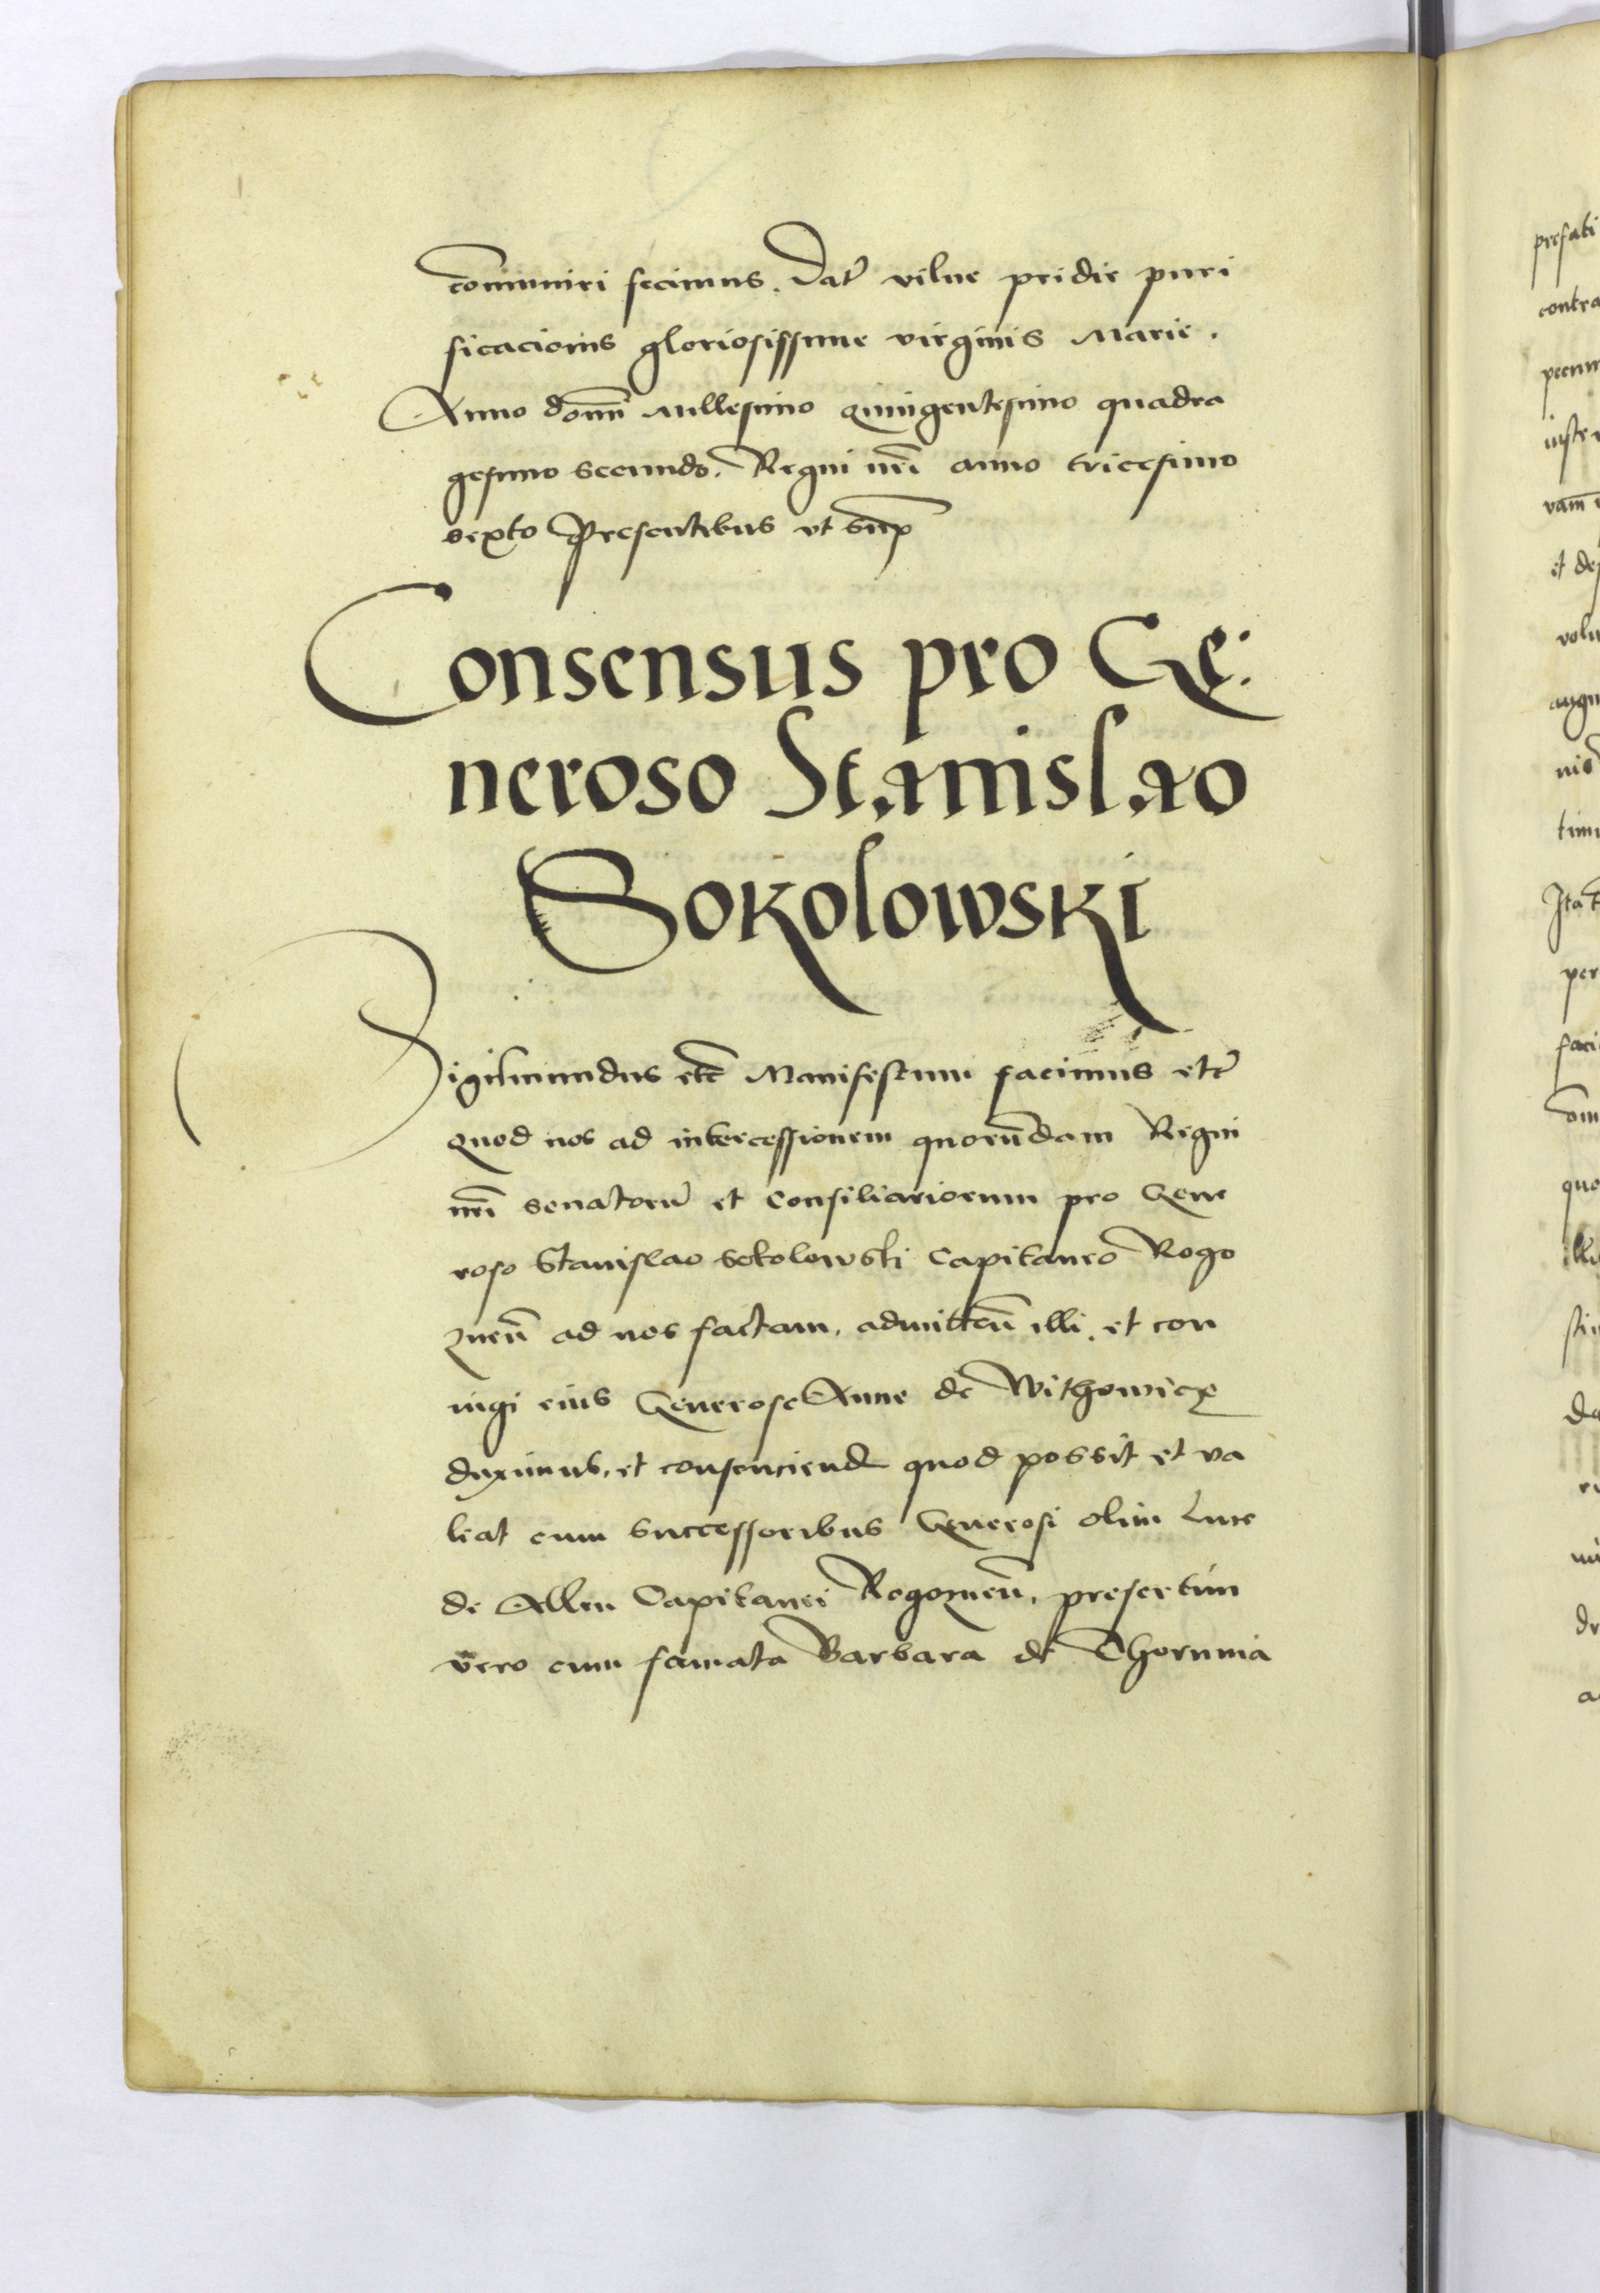 com̄uniri fecimus. Dat̃ vilne pridie puri
ficacionis gloriosissime virginis Marie.
Anno domĩ Millesimo Quingentesimo quadra
gesimo secundo. Regni nr̃i anno tricesimo
sexto Presentibus vt sup̃
Consensus pro Ge:
neroso Stanislao
Sokolowski
Sigismundus etc̃ Manifestum facimus etc̃
Quod nos ad intercessionem quorundam Regni
nr̃i senatorũ et Consiliariorum pro Gene
roso Stanislao Sokolowski Capitaneo Rogo
zneñ ad nos factam, admitteñ illi et con
iugi eius Generose Anne de Withowicz
duximus, et consenciend quod possit et va
leat cum successoribus Generosi olim Luce
de Allen Capitanei Rogozneñ, presertim
vero cum famata Barbara de Thorunia
prefati
contra
et